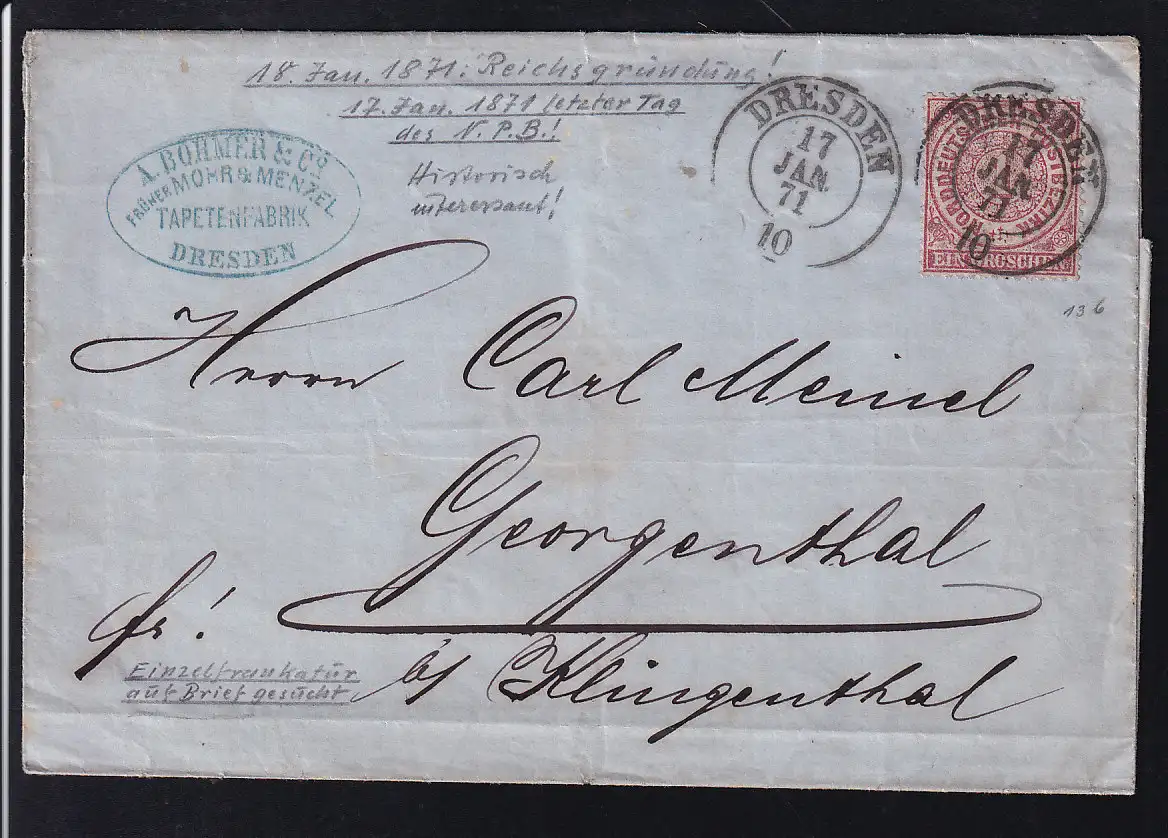 18. Jan. 1871: Reichsgründung!
17. Jan. 1871 letzter Tag
des N.P.B.!
Historisch
interessant!
A. BÖHMER & Cº
FRÜHER MOHR & MENZEL
TAPETENFABRIK
DRESDEN
DRESDEN
17
JAN
71
10
NORDDEUTSCHER POSTBEZIRK
EIN GROSCHEN
DRESDEN
17
JAN
71
10
13 6
Herrn Carl Meinel
Georgenthal
fr!
b/ Klingenthal
Einzelfrankatur
auf Brief gesucht